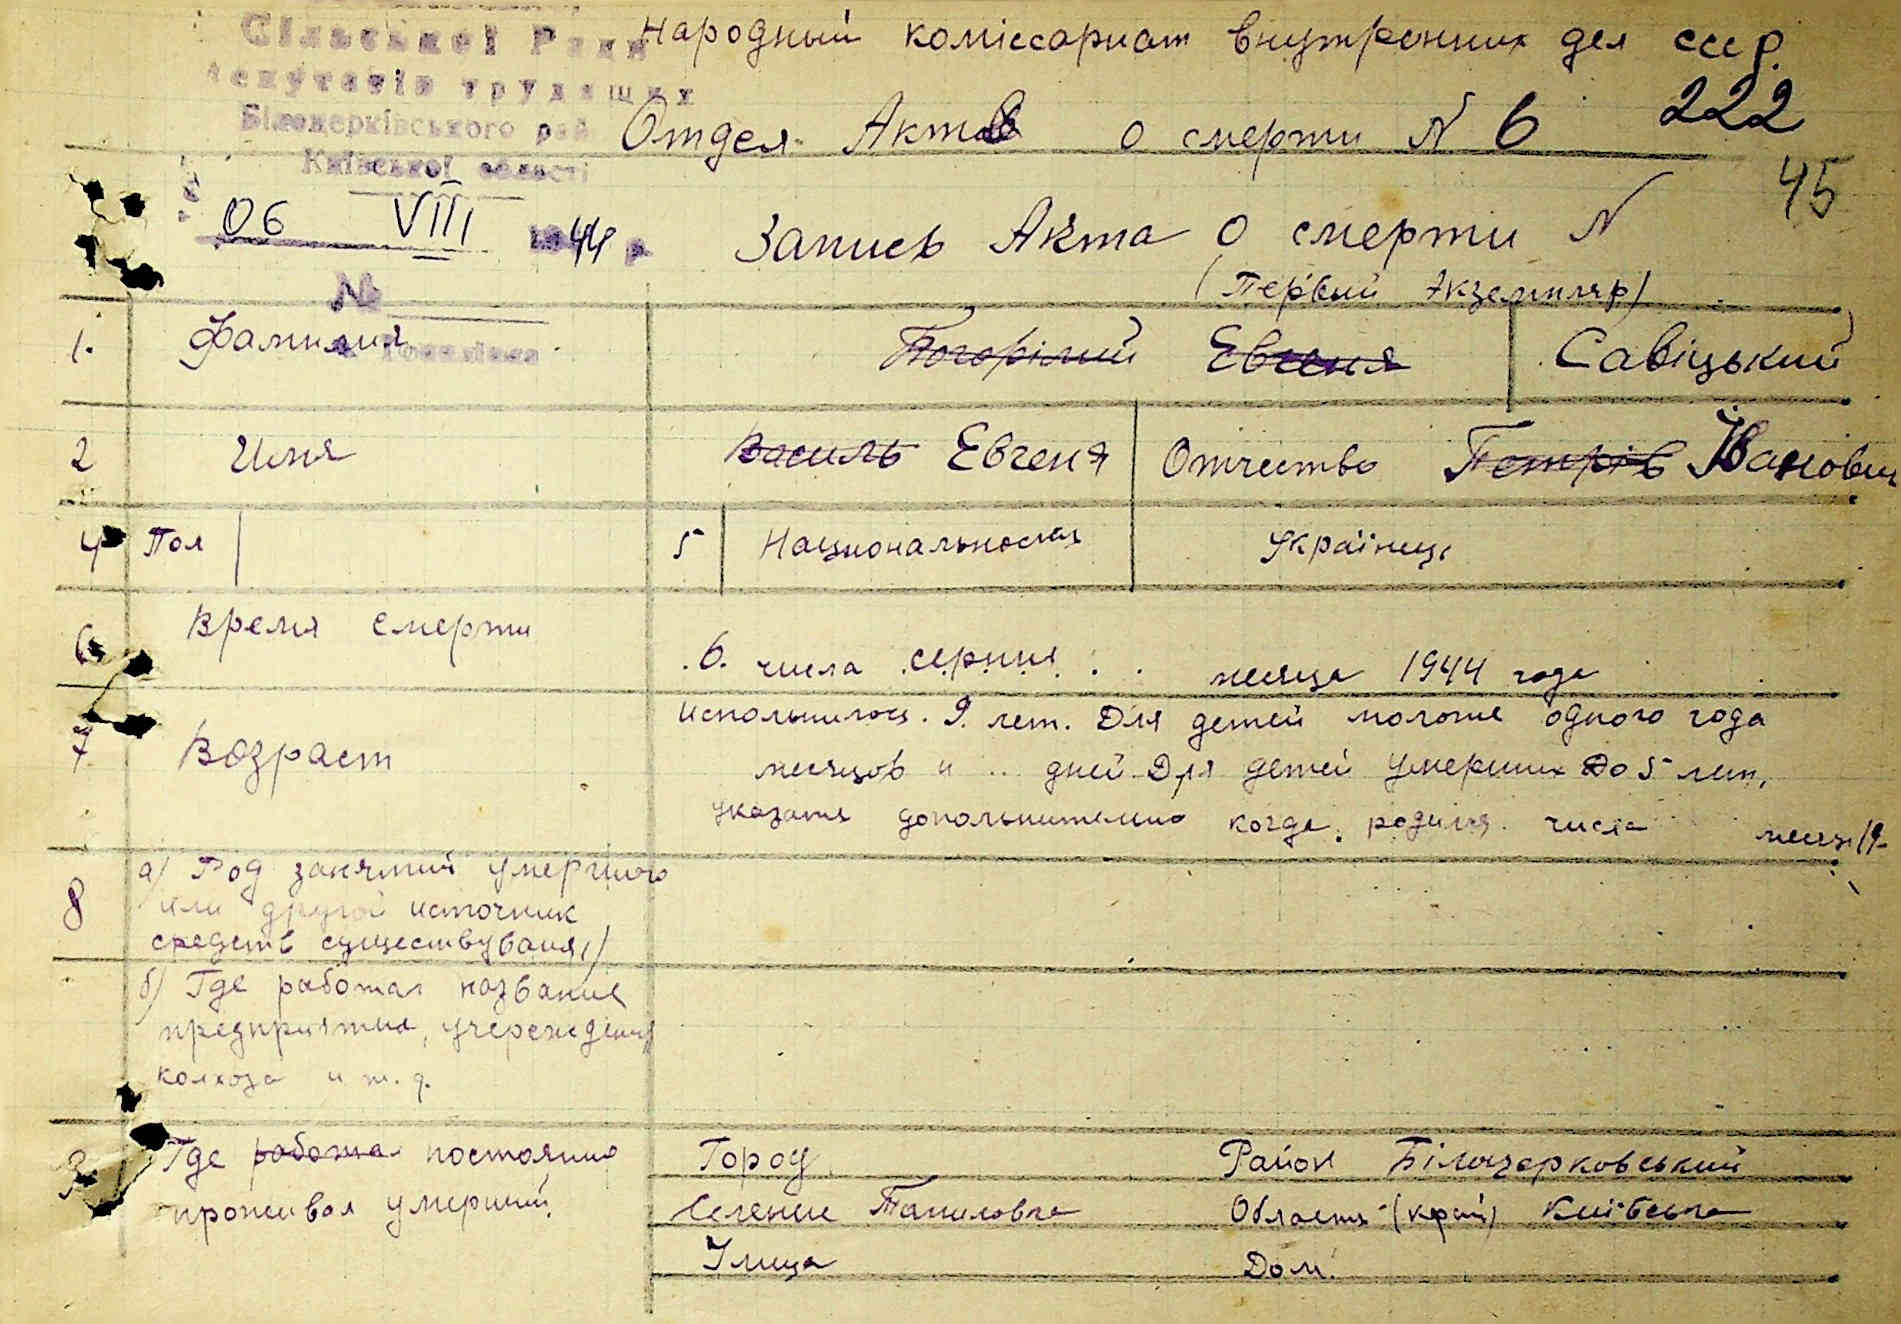 Сільської Ради
депутатів трудящих
Білоцерківського рай
Київської області
Народный коміссариат внутренних дел ссср.
222
Отдел Актов о смерти N 6
45
06 VIII 1944 р
Запись Акта о смерти N
(Первый Экземпляр)
№
1. Фамилия Погорілий Евгеня Савіцький
2 Имя Василь Евгеня Отчество Петрів Іванович
4 Пол 5 Национальность Українець
6 Время смерти .6. числа серпня . . месяца 1944 года
7 Возраст Исполнилось . 9. лет. Для детей моложе одного года
месяцов и .. дней Для детей умерших до 5 лет,
указать дополнительно когда родился числа месяц 19
8 а) Род занятий умершого
или другой источник
средств существуваня,)
б) Где работал название
предприятия, учереждения
колхоза и т. д.
Где работал постоянно
проживал умерший.
Город Район Білоцерковський
Селение Томиловка Область (край) Київська
Улица Дом.